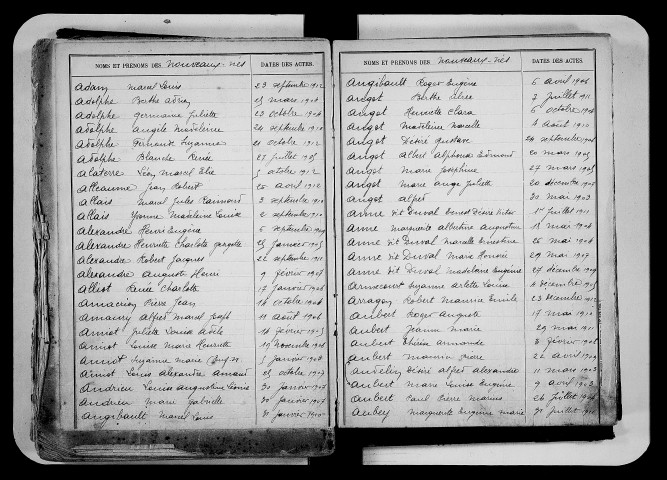 NOMS ET PRÉNOMS DES Nouveaux-nés DATES DES ACTES.
Adam Marcel Louis 23 septembre 1912
Adolphe Berthe 25 mars 1904
Adolphe Germaine Juliette 23 octobre 1904
Adolphe Angèle Madeleine 24 septembre 1910
Adolphe Suzanne 21 octobre 1912
Adolphe Blanche Renée 27 juillet 1905
Alaterre Léon Marcel Elie 5 octobre 1912
Alleaume Jean Robert 20 avril 1912
Allais Marcel Jules Raimond 3 septembre 1910
Allais Yvonne Madeleine Louise 2 septembre 1910
Alexandre Henri Eugène 5 septembre 1909
Alexandre Henriette Charlotte Georgette 25 janvier 1905
Alexandre Robert Jacques 22 septembre 1911
Alexandre Auguste Henri 9 février 1908
Alliot Renée Charlotte 17 janvier 1908
Pierre Jean 16 octobre 1906
Amaury Alfred Marcel Joseph 11 août 1906
Amiot Juliette Louise Adèle 16 février 1905
Amiot Louise Marie Henriette 19 novembre 1908
Amiot Suzanne Marie 5 janvier 1908
Amiot Louis Alexandre Armand 25 octobre 1907
Andrieu Louise Augustine Léonie 30 janvier 1907
Andrieu Marie Gabrielle 30 janvier 1907
Angibault Marcel Louis 31 janvier 1910
NOMS ET PRÉNOMS DES Nouveaux-nés DATES DES ACTES.
Angibault Roger Eugène 5 avril 1906
Angot Berthe Alice 7 juillet 1911
Angot Henriette Clara 6 octobre 1904
Angot Madeleine Marcelle 4 août 1910
Angot Désiré Gustave 24 septembre 1908
Angot Albert Alphonse Edmond 20 mars 1905
Angot Marie Joséphine 27 mars 1905
Angot Marie Ange Juliette 20 décembre 1907
Angot Alfred 30 mai 1903
Anne dit Duval Ernest Désiré Victor 1er juillet 1911
Anne Marguerite Albertine Augustine 15 mai 1904
Anne dit Duval Marcelle Ernestine 26 mai 1904
Anne dit Duval Marie Honorée 29 mai 1907
Anne dit Duval Madeleine Eugénie 27 décembre 1909
Annecourt Suzanne Arlette Louise 4 décembre 1905
Arragon Robert Maurice Emile 23 décembre 1912
Aubert Roger Auguste 17 mai 1910
Aubert Jeanne Marie 29 mai 1911
Aubert Armande 8 février 1906
Aubert Maurice Pierre 22 avril 1909
Désiré Alfred Alexandre 11 mars 1903
Aubert Marie Louise Eugénie 9 avril 1903
Aubert Paul Pierre Marius 26 juillet 1904
Aubey Marguerite Eugénie Marie 31 juillet 1911